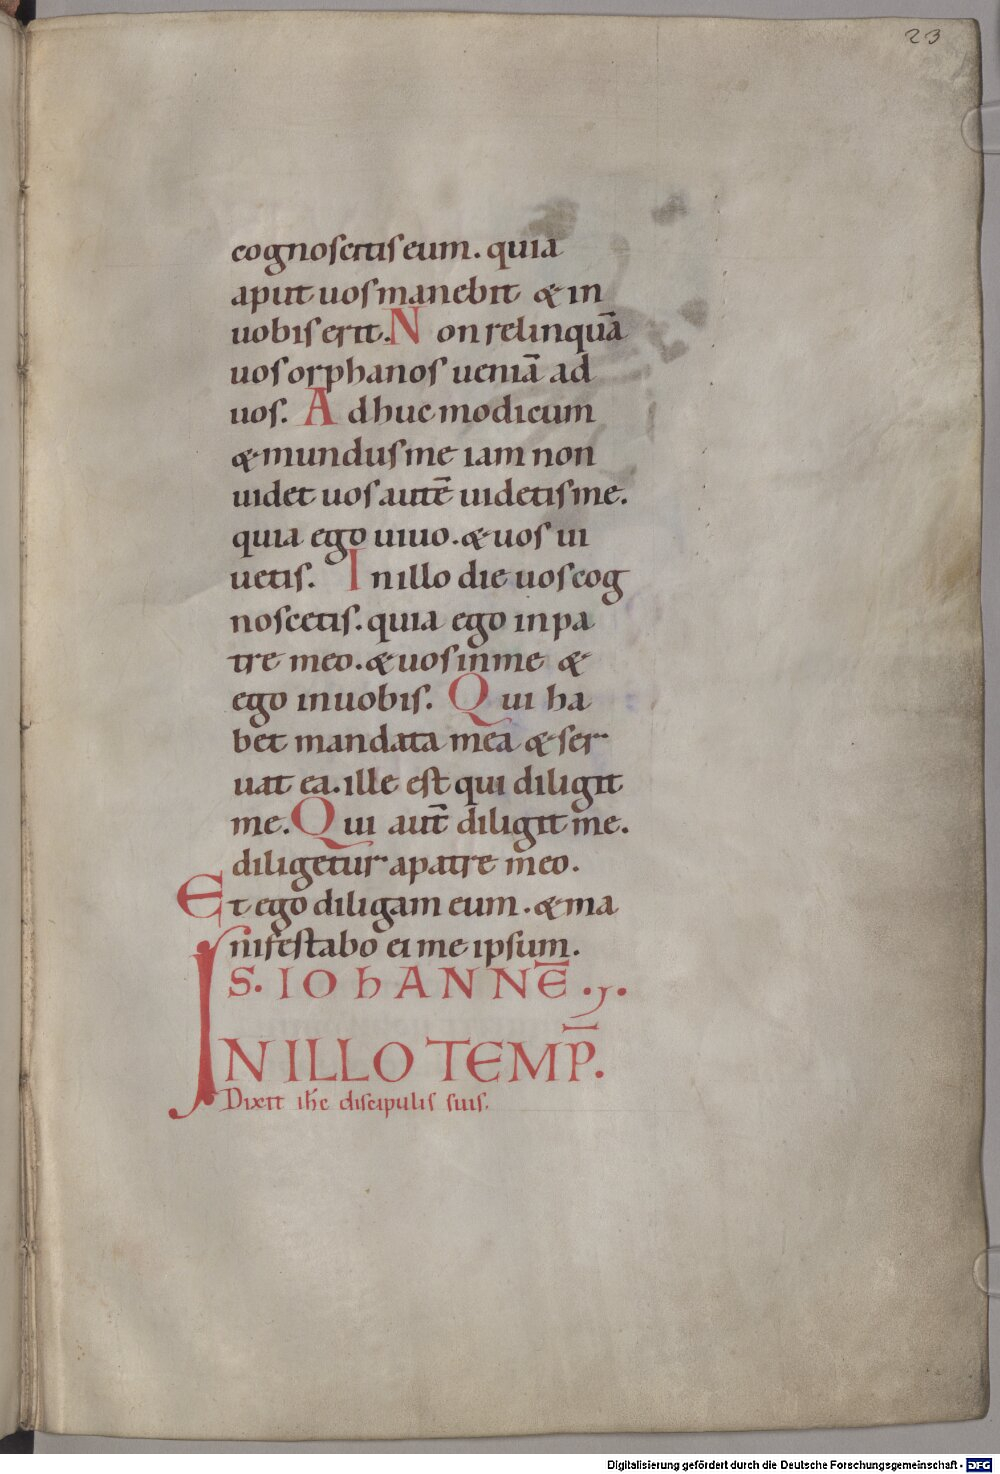 23
cognoscetis eum. quia
aput uos manebit & in
uobis erit. Non relinquā
uos orphanos ueniā ad
uos. Adhuc modicum
& mundus me iam non
uidet uos autē uidetis me.
quia ego uiuo. & uos ui
uetis. In illo die uos cog
noscetis. quia ego in pa
tre meo. & uos in me &
ego in uobis. Qui ha
bet mandata mea & ser
uat ea. ille est qui diligit
me. Qui aut̄ diligit me.
diligetur a patre meo.
Et ego diligam eum. & ma
nifestabo ei me ipsum.
S. IOhANNĒ.,.
IN ILLO TEMP̄.
Dixit ih̄c discipulis suis.
Digitalisierung gefördert durch die Deutsche Forschungsgemeinschaft - DFG